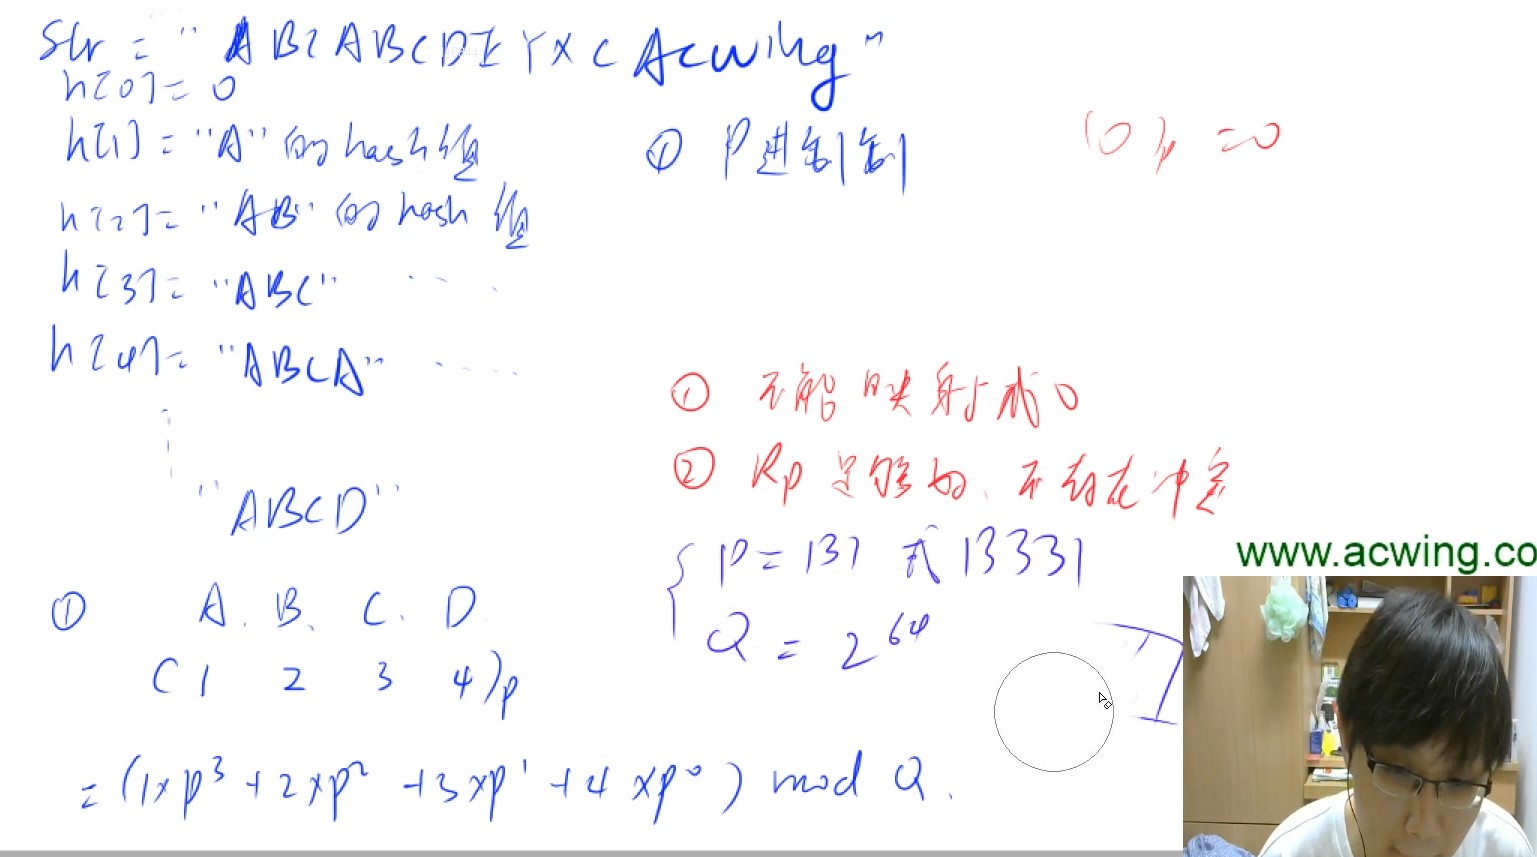 Str = "ABCABCDEYXCAcwing"
h[0] = 0
h[1] = "A" 的hash值
h[2] = "AB" 的hash值
h[3] = "ABC" ....
h[4] = "ABCA" ....
"ABCD"
① P进制
(0)p = 0
① 不能映射成0
② Rp足够好、不存在冲突
P = 131 或 13331
Q = 2^64
www.acwing.co
① A. B. C. D
(1 2 3 4)p
= (1×p^3 + 2×p^2 + 3×p^1 + 4×p^0) mod Q.